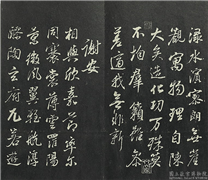 淥水濱寥朗無崖
觀寓物理自陳
大矣造化功萬殊莫
不均群籟雖參
差適我無非新
謝安
相與欣嘉節率爾
同褰裳薄雲羅陽
景微風翼輕航醇
醪陶府兀若遊